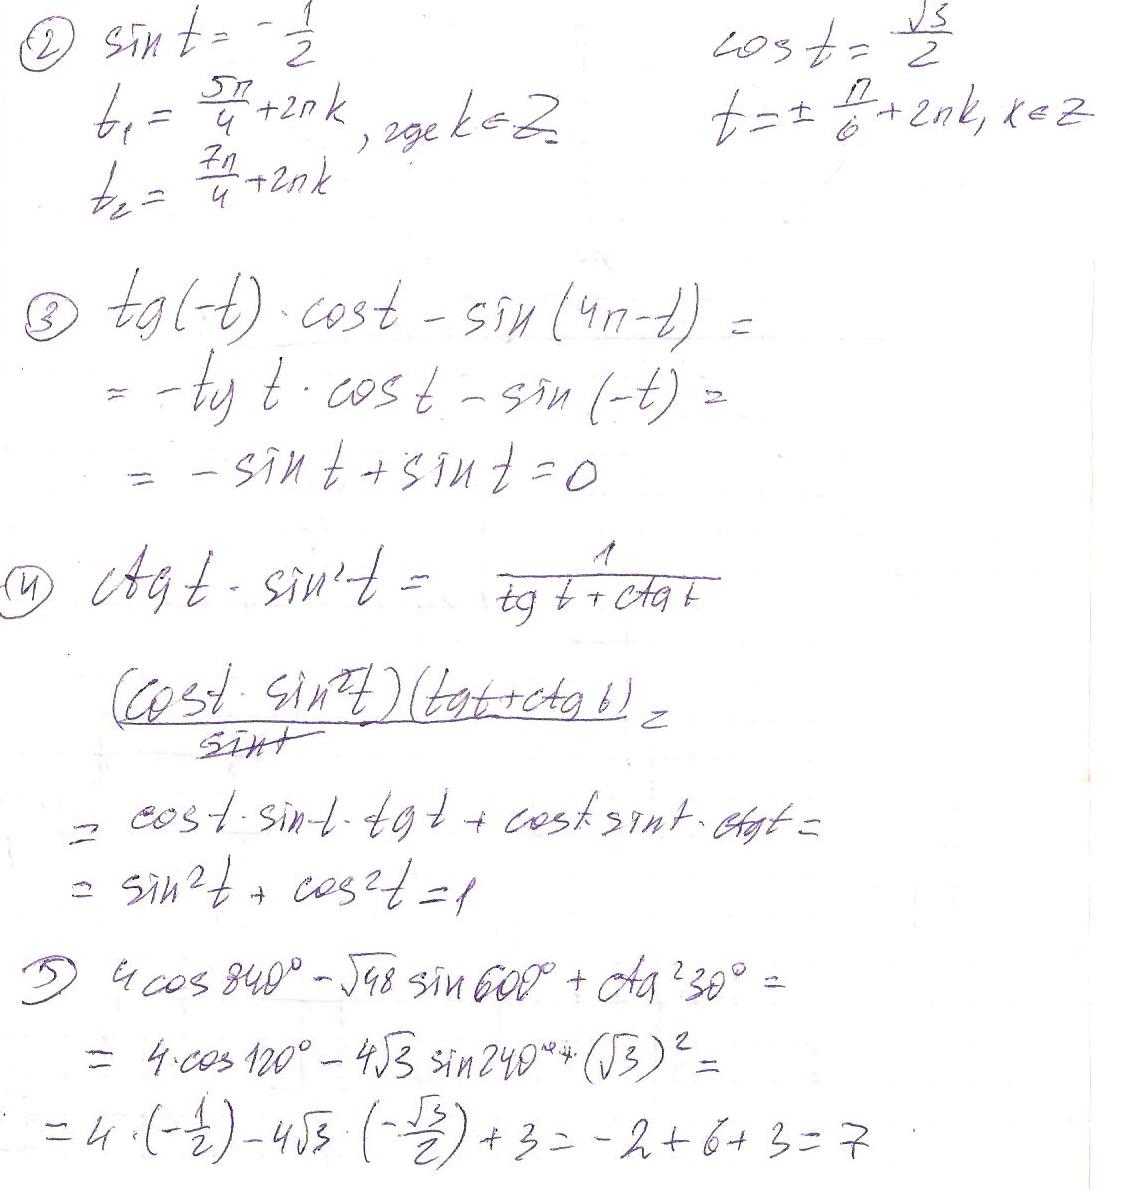 ② sin t = -1/2    cos t = √3/2
t₁ = 5π/4 + 2πk, где k ∈ Z    t = ± π/6 + 2πk, k ∈ Z
t₂ = 7π/4 + 2πk
③ tg(-t) · cos t - sin(4π - t) =
= -tg t · cos t - sin(-t) =
= - sin t + sin t = 0
④ ctg t · sin² t = 1/(tg t + ctg t)
(cos t · sin² t)(tg t + ctg t)/sin t =
= cos t · sin t · tg t + cos t · sin t · ctg t =
= sin² t + cos² t = 1
⑤ 4 cos 840° - √48 sin 600° + ctg² 30° =
= 4 · cos 120° - 4√3 sin 240° + (√3)² =
= 4 · (-1/2) - 4√3 · (-√3/2) + 3 = -2 + 6 + 3 = 7